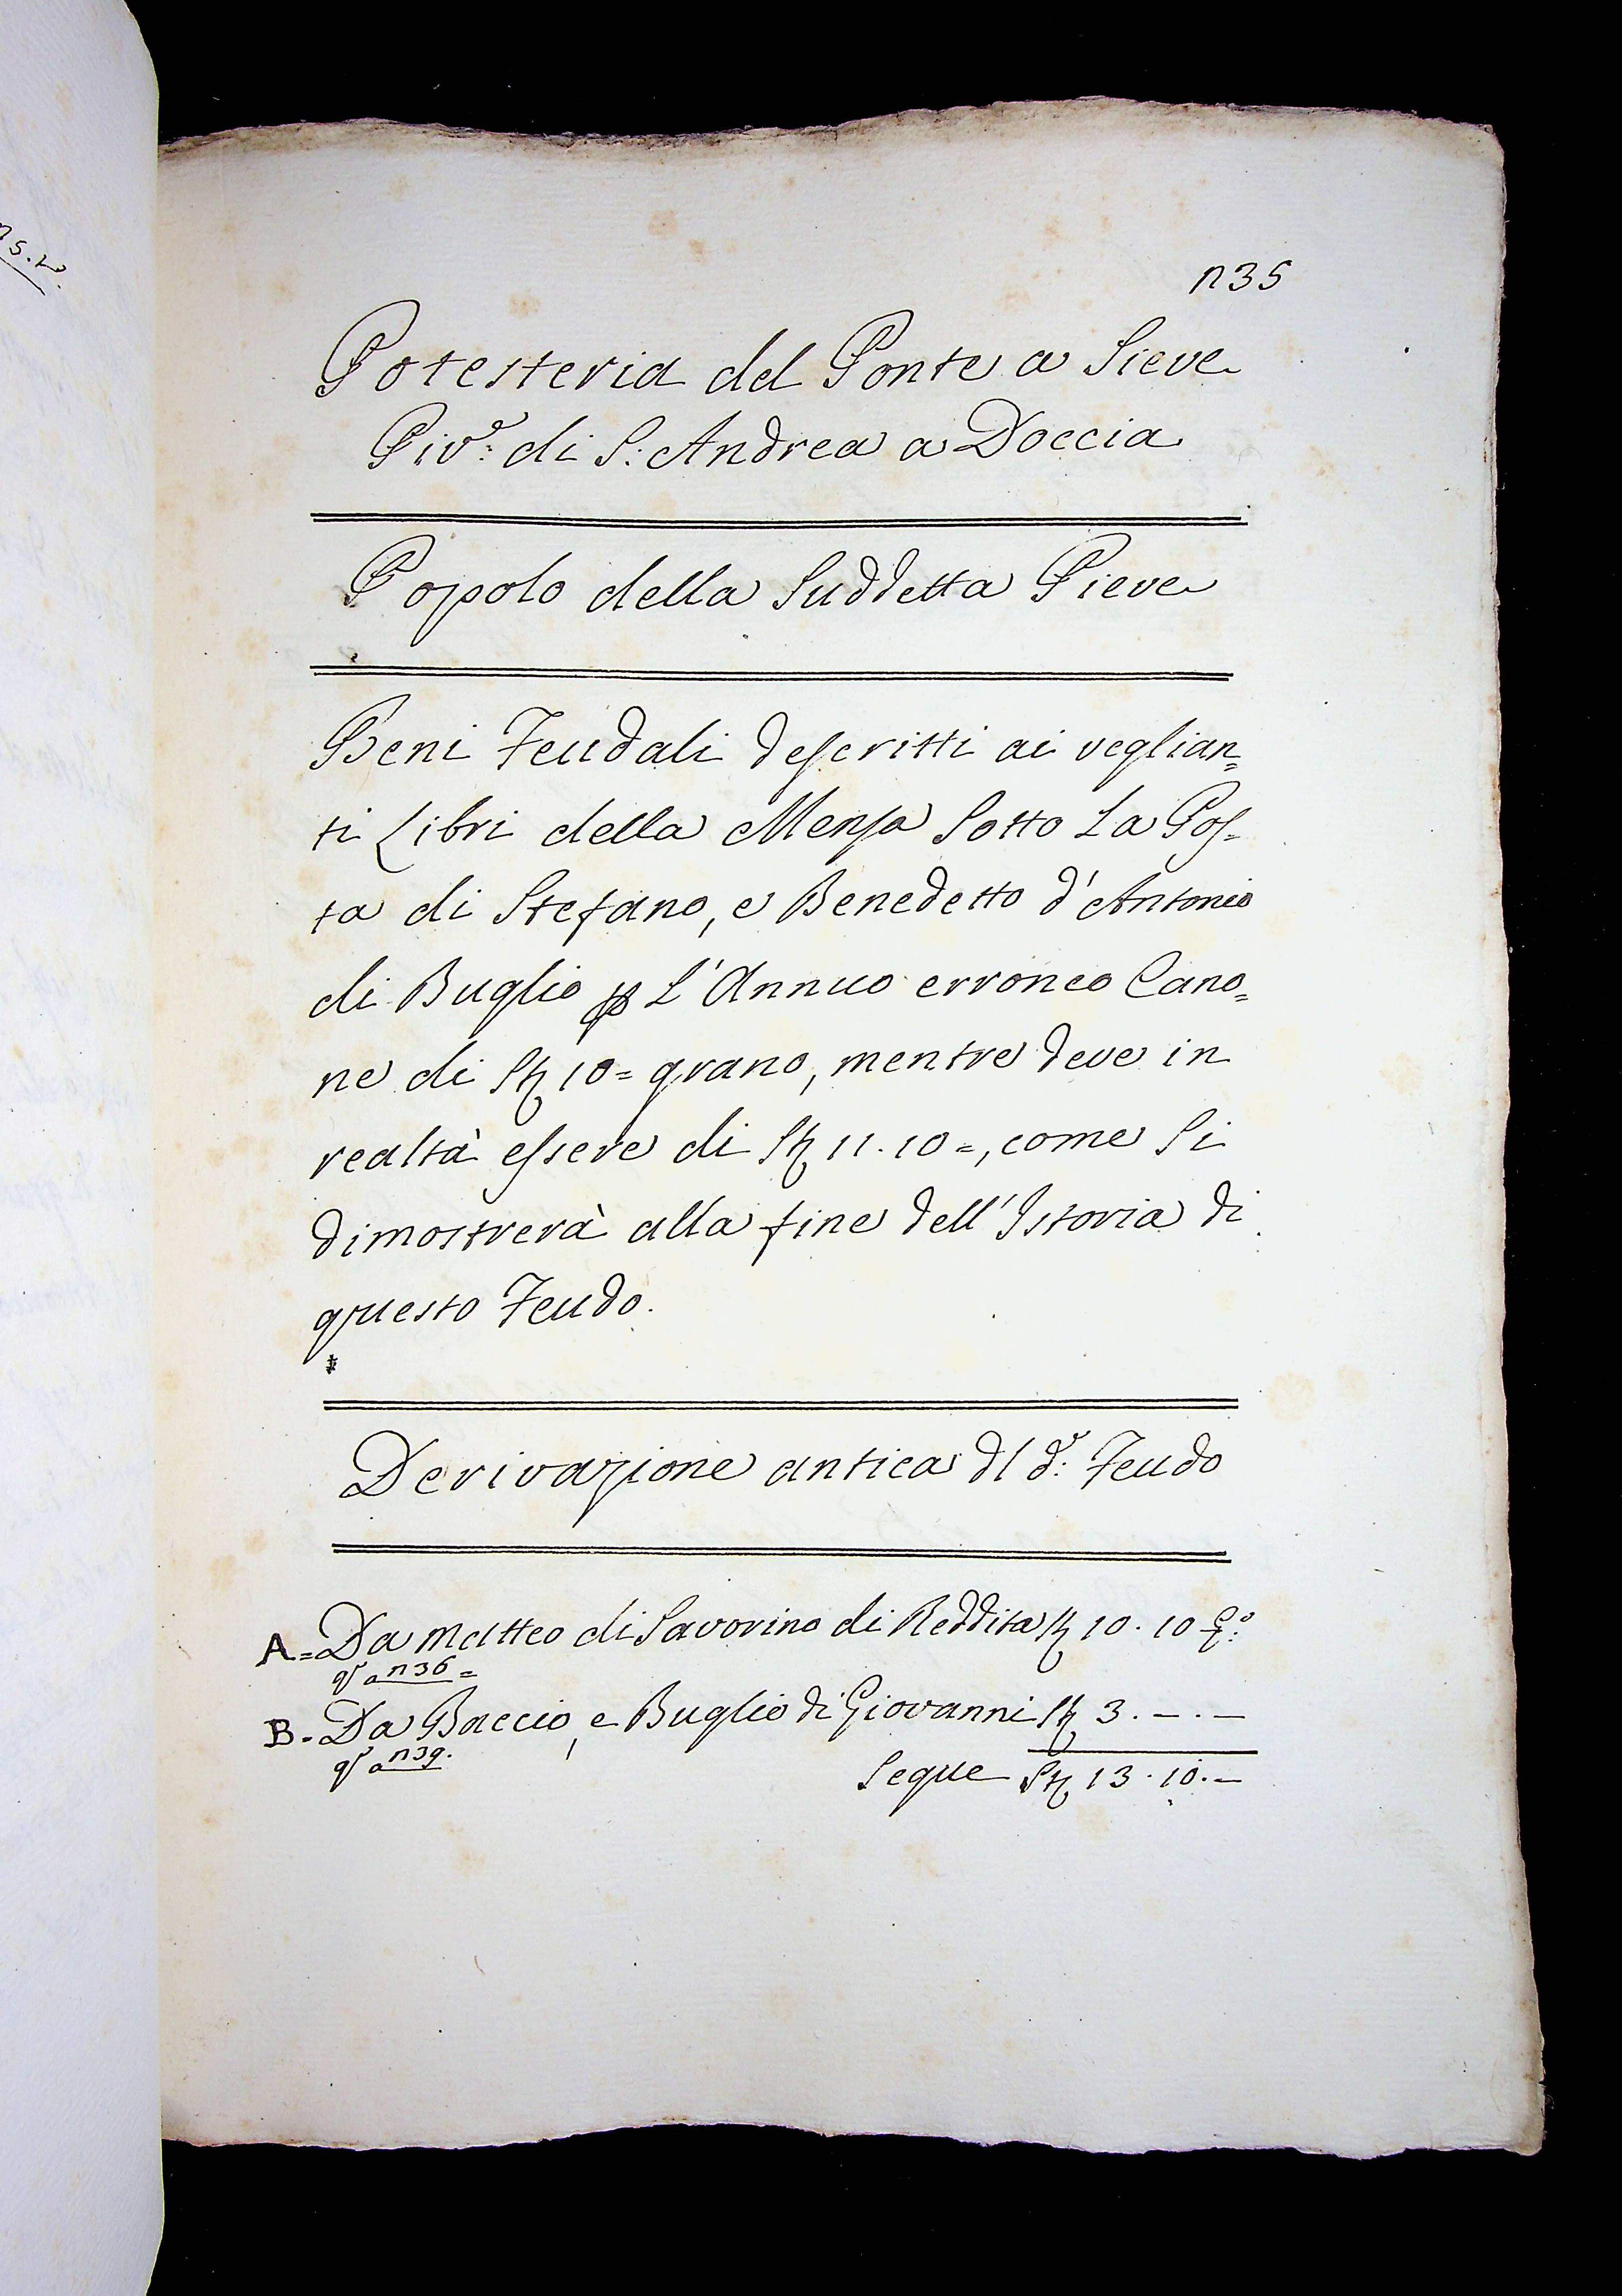 n35
Potesteria del Ponte a Sieve
Piv.e di S: Andrea a Doccia
Popolo della Suddetta Pieve
Beni Feudali descritti ai veglian=
ti Libri della Mensa Sotto La Pos=
ta di Stefano, e Benedetto d'Antonio
di Buglio p L'Annuo erroneo Cano=
ne di St 10= grano, mentre deve in
realtà essere di St 11. 10=, come Si
dimostrerà alla fine dell'Istoria di
questo Feudo.
Derivazione antica dl d.o: Feudo
A= Da Matteo di Savorino di Reddita St 10. 10 G:o
n36=
B= Da Baccio, e Buglio di Giovanni St 3. —. —
n39.
Segue St 13. 10. —